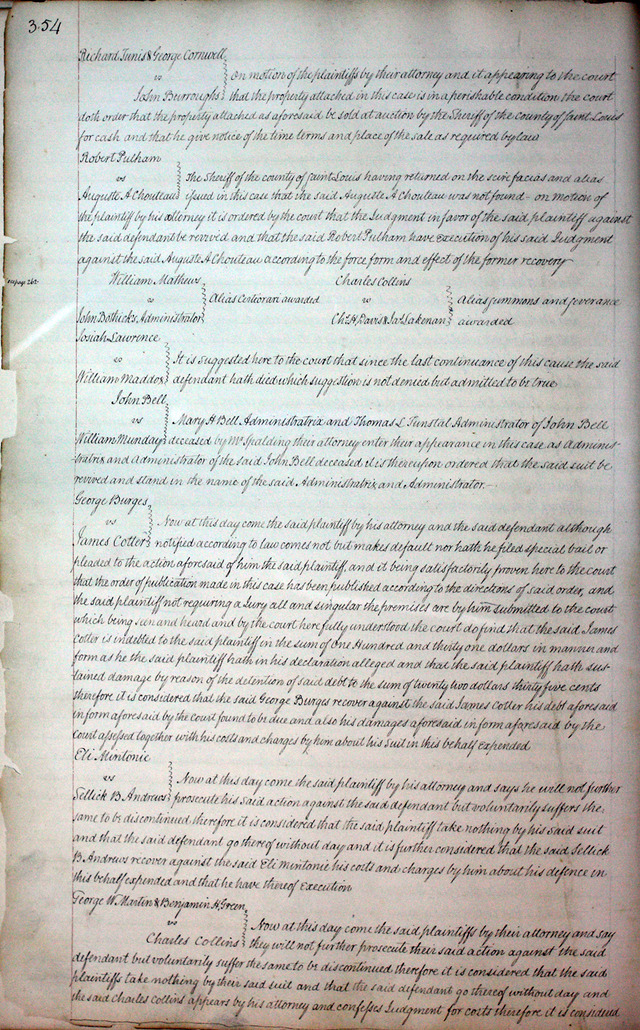 354
Richard Tunis & George Cornwell
vs
On motion of the plaintiffs by their attorney and it appearing to the court
John Burroughs that the property attached in this case is in a perishable condition the court
doth order that the property attached as aforesaid be sold at auction by the Sheriff of the county of Saint Louis
for cash and that he give notice of the time terms and place of the sale as required by law
Robert Pulham
vs
The Sheriff of the county of Saint Louis having returned on the scire facias and alias
Auguste A Chouteau issued in this case that the said Auguste A Chouteau was not found - on motion of
the plaintiff by his attorney it is ordered by the court that the Judgment in favor of the said plaintiff against
the said defendant be revived and that the said Robert Pulham have execution of his said Judgment
against the said Auguste A Chouteau according to the force form and effect of the former recovery
see page 262
William Mathews
vs
Alias Certiorari awarded
John Bothicks Administrator
Charles Collins
vs
Alias summons and severance
Chs. H. Davis & Jas. Lakenan awarded
Josiah Lawrence
vs
It is suggested here to the court that since the last continuance of this cause the said
William Maddox defendant hath died which suggestion is not denied but admitted to be true
John Bell
vs
Mary H Bell Administratrix and Thomas L Tunstal Administrator of John Bell
William Munday deceased by Mr Spalding their attorney enter their appearance in this case as Adminis-
tratrix and Administrator of the said John Bell deceased it is thereupon ordered that the said suit be
revived and stand in the name of the said Administratrix and Administrator.-
George Burges
vs
Now at this day come the said plaintiff by his attorney and the said defendant although
James Cotler notified according to law comes not but makes default nor hath he filed special bail or
pleaded to the action aforesaid of him the said plaintiff, and it being satisfactorily proven here to the court
that the order of publication made in this case has been published according to the directions of said order, and
the said plaintiff not requiring a Jury all and singular the premises are by him submitted to the court
which being seen and heard and by the court here fully understood the court do find that the said James
Cotler is indebted to the said plaintiff in the sum of One Hundred and thirty one dollars in manner and
form as he the said plaintiff hath in his declaration alleged and that the said plaintiff hath sus-
tained damage by reason of the detention of said debt to the sum of twenty two dollars thirty five cents
therefore it is considered that the said George Burges recover against the said James Cotler his debt aforesaid
in form aforesaid by the court found to be due and also his damages aforesaid in form aforesaid by the
Court assessed together with his costs and charges by him about his suit in this behalf expended
Eli Mintonie
vs
Now at this day come the said plaintiff by his attorney and says he will not further
Sellick B Andrews prosecute his said action against the said defendant but voluntarily suffers the
same to be discontinued therefore it is considered that the said plaintiff take nothing by his said suit
and that the said defendant go thereof without day and it is further considered that the said Sellick
B. Andrews recover against the said Eli Mintonie his costs and charges by him about his defence in
this behalf expended and that he have thereof Execution
George W. Martin & Benjamin H. Green
vs
Now at this day come the said plaintiffs by their attorney and say
Charles Collins they will not further prosecute their said action against the said
defendant but voluntarily suffer the same to be discontinued therefore it is considered that the said
plaintiffs take nothing by their said suit and that the said defendant go thereof without day and
the said Charles Collins appears by his attorney and confesses Judgment for costs therefore it is considered